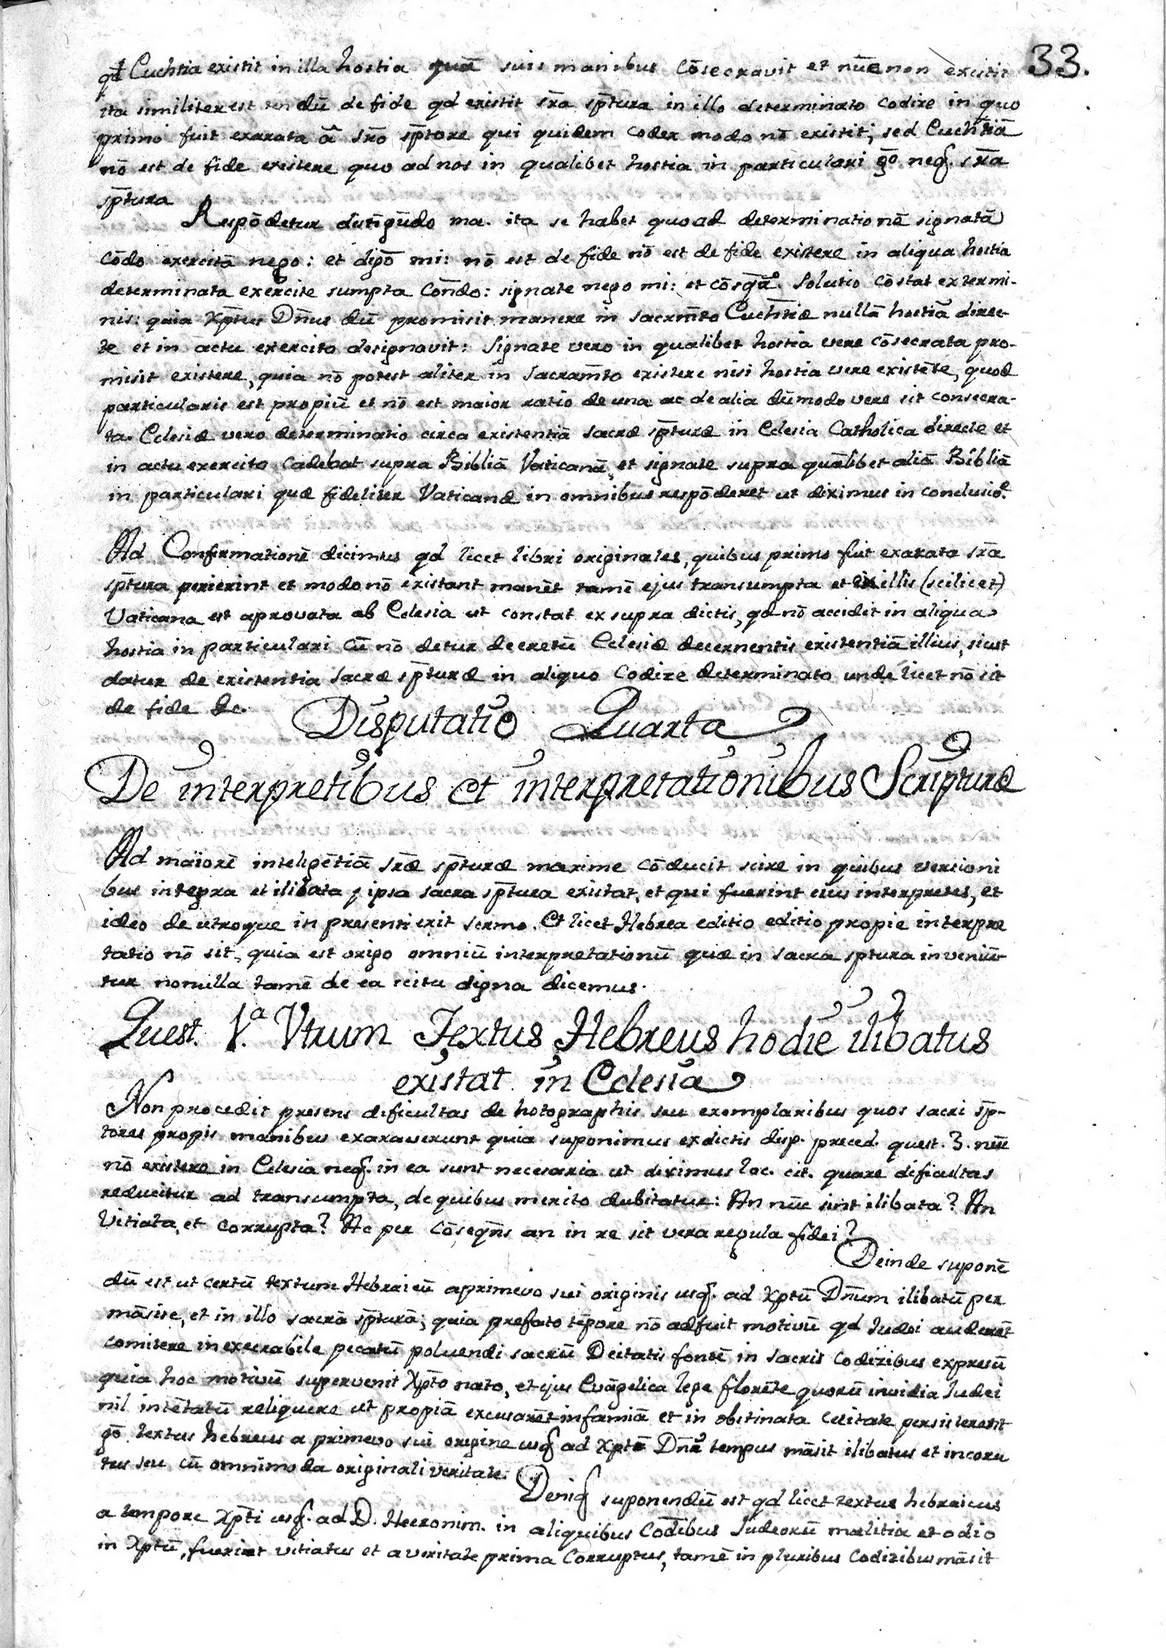 33.
qd Euchtia existit in illa hostia quā suis manibus cōsecravit et nūc non existit
ita similiter est dū de fide qd existit sra sptura in illo determinato codixe in quo
primo fuit exarata â sro sptore qui quidem codex modo nō existit; sed Euchtiā
nō est de fide existere quo ad nos in qualibet hostia in particulari gō neq. sra
sptura
Respōdetur distigūdo ma. ita se habet quoad determinationē signatā
cōdo exercitā nego: et digō mi: nō est de fide nō est de fide existere in aliqua hostia
determinata exercite sumpta Condo: signate nego mi: et cōsqā. Solutio cōstat ex termi-
nis: quia Xptus Dnus dū promisit manere in sacramto Euchtiæ nullā hostiā direc-
te et in actu exercito designavit: Signate vero in qualibet hostia vere cōsecrata pro-
misit existere, quia nō potest aliter in Sacramto existere nisi hostia vere existēte, quod
particularis est propiū et nō est maior ratio de una ac de alia dūmodo vere sit consecra-
ta. Eclesiæ vero determinatio circa existentiā sacræ spturæ in Eclesia Catholica directe et
in actu exercito cadebat supra Bibliā Vaticanā, et signate supra quālibet aliā Bibliā
in particulari quæ fideliter Vaticanæ in omnibus respōderet ut diximus in conclusio.e
Ad Confirmationē dicimus qd licet libri originales, quibus primo fuit exarata sra
sptura perierint et modo nō existant manēt tamē ejus transumpta et ex illis (scilicet)
Vaticana est aprovata ab Eclesia ut constat ex supra dictis, qd nō accidit in aliqua
hostia in particulari cū nō detur decretū Eclesiæ decernentis existentiā illius, sicut
datur de existentia sacræ spturæ in aliquo Codixe determinato unde licet nō sit
de fide &c.
Disputatio Quarta
De interpretibus et interpretationibus Scripturæ
Ad maiorē inteligētiā sræ spturæ maxime cōducit scire in quibus versioni
bus integra et ilibata ipsa sacra sptura existat, et qui fuerint eius interpretes, et
ideo de utroque in presenti erit sermo. Et licet Hebrea editio editio propie interpre
tatio nō sit, quia est origo omniū interpretationū quæ in sacra sptura inveniū-
tur nonulla tamē de ea scitu digna dicemus.
Quest. 1.a Utrum Textus Hebreus hodie ilibatus
existat in Eclesia
Non procedit presens dificultas de hotographis seu exemplaribus quos sacri sp-
tores propis manibus exaraverunt quia suponimus ex dictis disp. preced. quest. 3. nūc
nō existere in Eclesia neq. in ea sunt necesaria ut diximus loc. cit. quare dificultas
reducitur ad transumpta, de quibus merito dubitatur: An nūc sint ilibata? An
Vitiata, et corrupta? Ac per cōseqns an in re sit vera regula fidei?
Deinde suponē
dū est ut certū textum Hebraicū a primevo sui originis usq. ad Xptū Dnum ilibatū per
māsise, et in illo sacrā spturā; quia prefato tēpore nō adfuit motivū qd Iudei auderēt
comitere inexecrabile pecatū poluendi sacrū Deitatis fontē in sacris Codixibus expresū
quia hoc motivū supervenit Xpto nato, et ejus Evāgelica lege florēte quorū invidia Iudei
nil intētatū reliquere ut propiā excusarēt infamiā et in obstinata cecitate persisterent
gō. textus hebreus a primevo sui origine usq. ad Xptū Dnū tempus māsit ilibatus et incoru
tus seu cū omnimoda originali veritate.
Deniq suponendū est qd licet textus hebraicus
a tempore Xpti usq. ad D. Hieronim. in aliquibus Codibus Iudeorū malitia et odio
in Xptū, fuerint vitiatus et a veritate prima Corruptus, tamē in pluribus Codixibus māsit